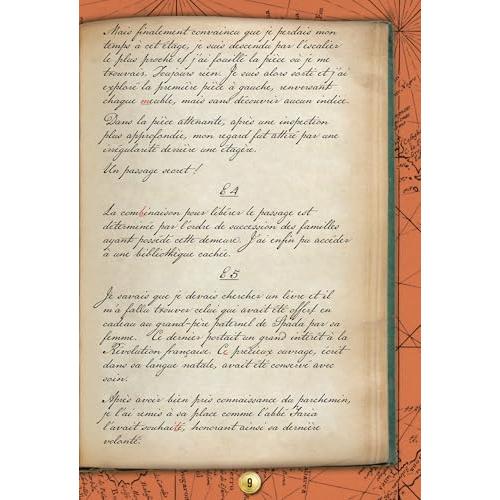 Mais finalement convaincu que je perdais mon
temps à cet étage, je suis descendu par l'escalier
le plus proche et j'ai fouillé la pièce où je me
trouvais. Toujours rien. Je suis alors sorti et j'ai
exploré la première pièce à gauche, renversant
chaque meuble, mais sans découvrir aucun indice.
Dans la pièce attenante, après une inspection
plus approfondie, mon regard fut attiré par une
irrégularité derrière une étagère.
Un passage secret !
E 4
La combinaison pour libérer le passage est
déterminée par l'ordre de succession des familles
ayant possédé cette demeure. J'ai enfin pu accéder
à une bibliothèque cachée.
E 5
Je savais que je devais chercher un livre et il
m'a fallu trouver celui que avait été offert en
cadeau au grand-père paternel de Spada par sa
femme. Ce dernier portait un grand intérêt à la
Révolution française. Ce précieux ouvrage, écrit
dans sa langue natale, avait été conservé avec
soin.
Après avoir bien pris connaissance du parchemin,
je l'ai remis à sa place comme l'abbé Faria
l'avait souhaité, honorant ainsi sa dernière
volonté.
9